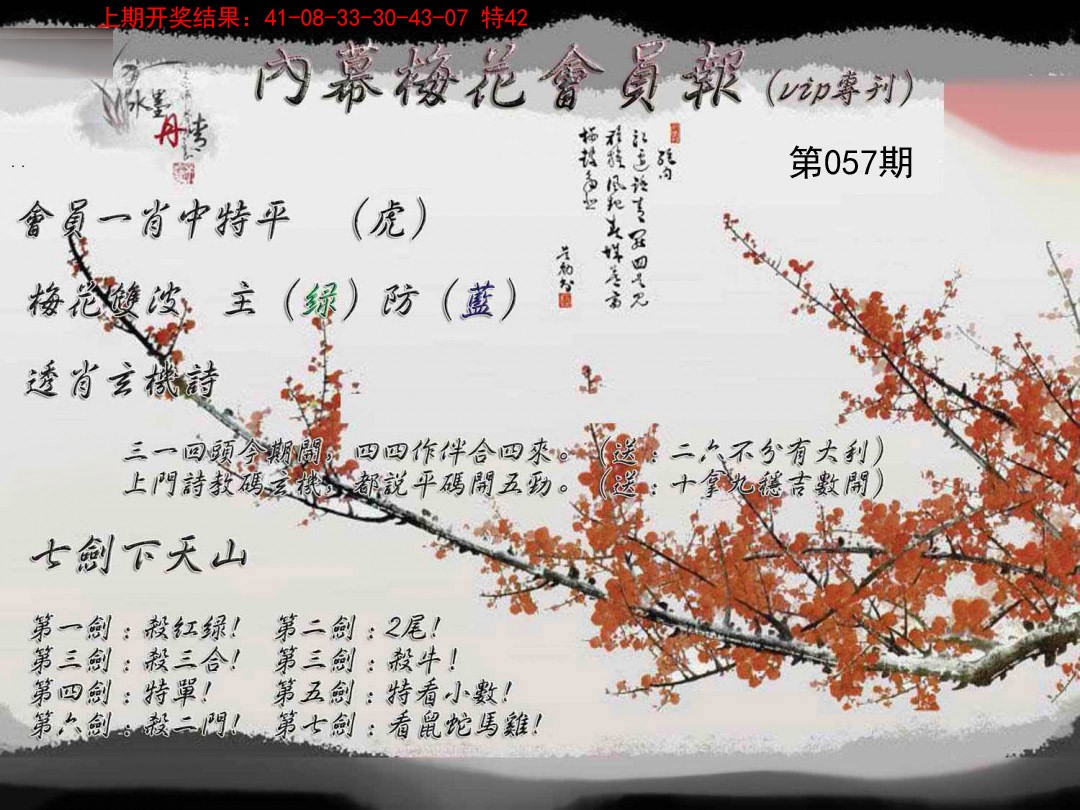 上期开奖结果：41-08-33-30-43-07 特42
內幕梅花會員報（vip專刊）
水墨
丹青
第057期
會員一肖中特平 （虎）
梅花雙波 主（绿）防（藍）
透肖玄機詩
三一回頭今期開，四四作伴合四來。（送：二六不分有大利）
上門詩教碼玄機，都說平碼開五勁。（送：十拿九穩吉數開）
七劍下天山
第一劍：殺红绿! 第二劍：2尾!
第三劍：殺三合! 第三劍：殺牛!
第四劍：特單! 第五劍：特看小數!
第六劍：殺二門! 第七劍：看鼠蛇馬雞!